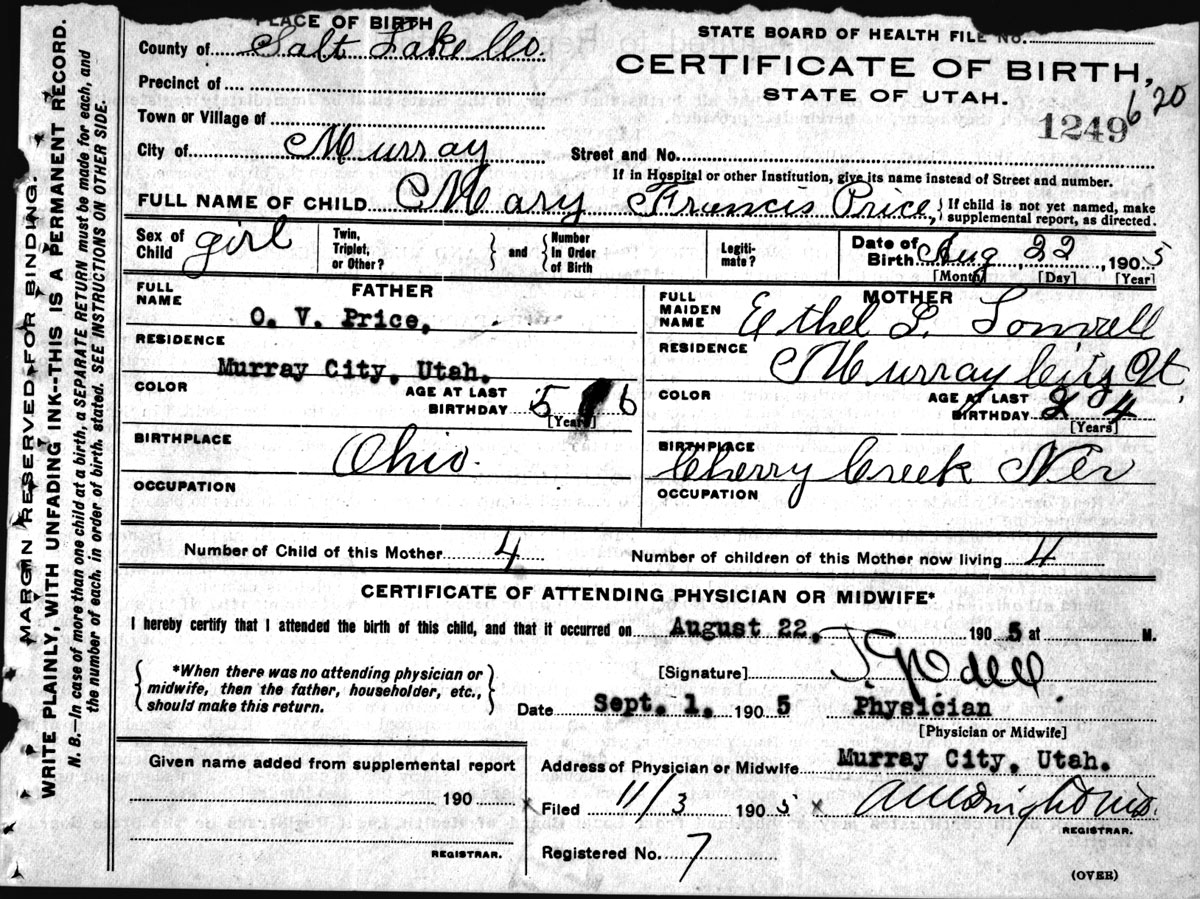 PLACE OF BIRTH
County of Salt Lake Co.
STATE BOARD OF HEALTH FILE No.
CERTIFICATE OF BIRTH,
STATE OF UTAH.
6 '20
1249
Precinct of
Town or Village of
City of Murray
Street and No.
If in Hospital or other Institution, give its name instead of Street and number.
FULL NAME OF CHILD Mary Francis Price, } If child is not yet named, make supplemental report, as directed.
Sex of Child girl
Twin, Triplet, or Other? } and { Number In Order of Birth
Legitimate?
Date of Birth Aug 22, 1905
[Month] [Day] [Year]
FATHER
FULL NAME
O. V. Price.
RESIDENCE
Murray City, Utah.
COLOR
AGE AT LAST BIRTHDAY 5 6
[Years]
BIRTHPLACE
Ohio.
OCCUPATION
MOTHER
FULL MAIDEN NAME Ethel L.
RESIDENCE Murray City Ut.
COLOR
AGE AT LAST BIRTHDAY 24
[Years]
BIRTHPLACE
Cherry Creek Nev
OCCUPATION
Number of Child of this Mother 4
Number of children of this Mother now living 4
CERTIFICATE OF ATTENDING PHYSICIAN OR MIDWIFE*
I hereby certify that I attended the birth of this child, and that it occurred on August 22, 1905 at M.
{ *When there was no attending physician or midwife, then the father, householder, etc., should make this return. }
[Signature]
Date Sept. 1. 1905
Physician
[Physician or Midwife]
Given name added from supplemental report
190
REGISTRAR.
Address of Physician or Midwife Murray City, Utah.
x Filed 11/3 1905 x
REGISTRAR.
Registered No. 7
(OVER)
MARGIN RESERVED FOR BINDING.
WRITE PLAINLY, WITH UNFADING INK--THIS IS A PERMANENT RECORD.
N. B.—In case of more than one child at a birth, a SEPARATE RETURN must be made for each, and
the number of each, in order of birth, stated. SEE INSTRUCTIONS ON OTHER SIDE.